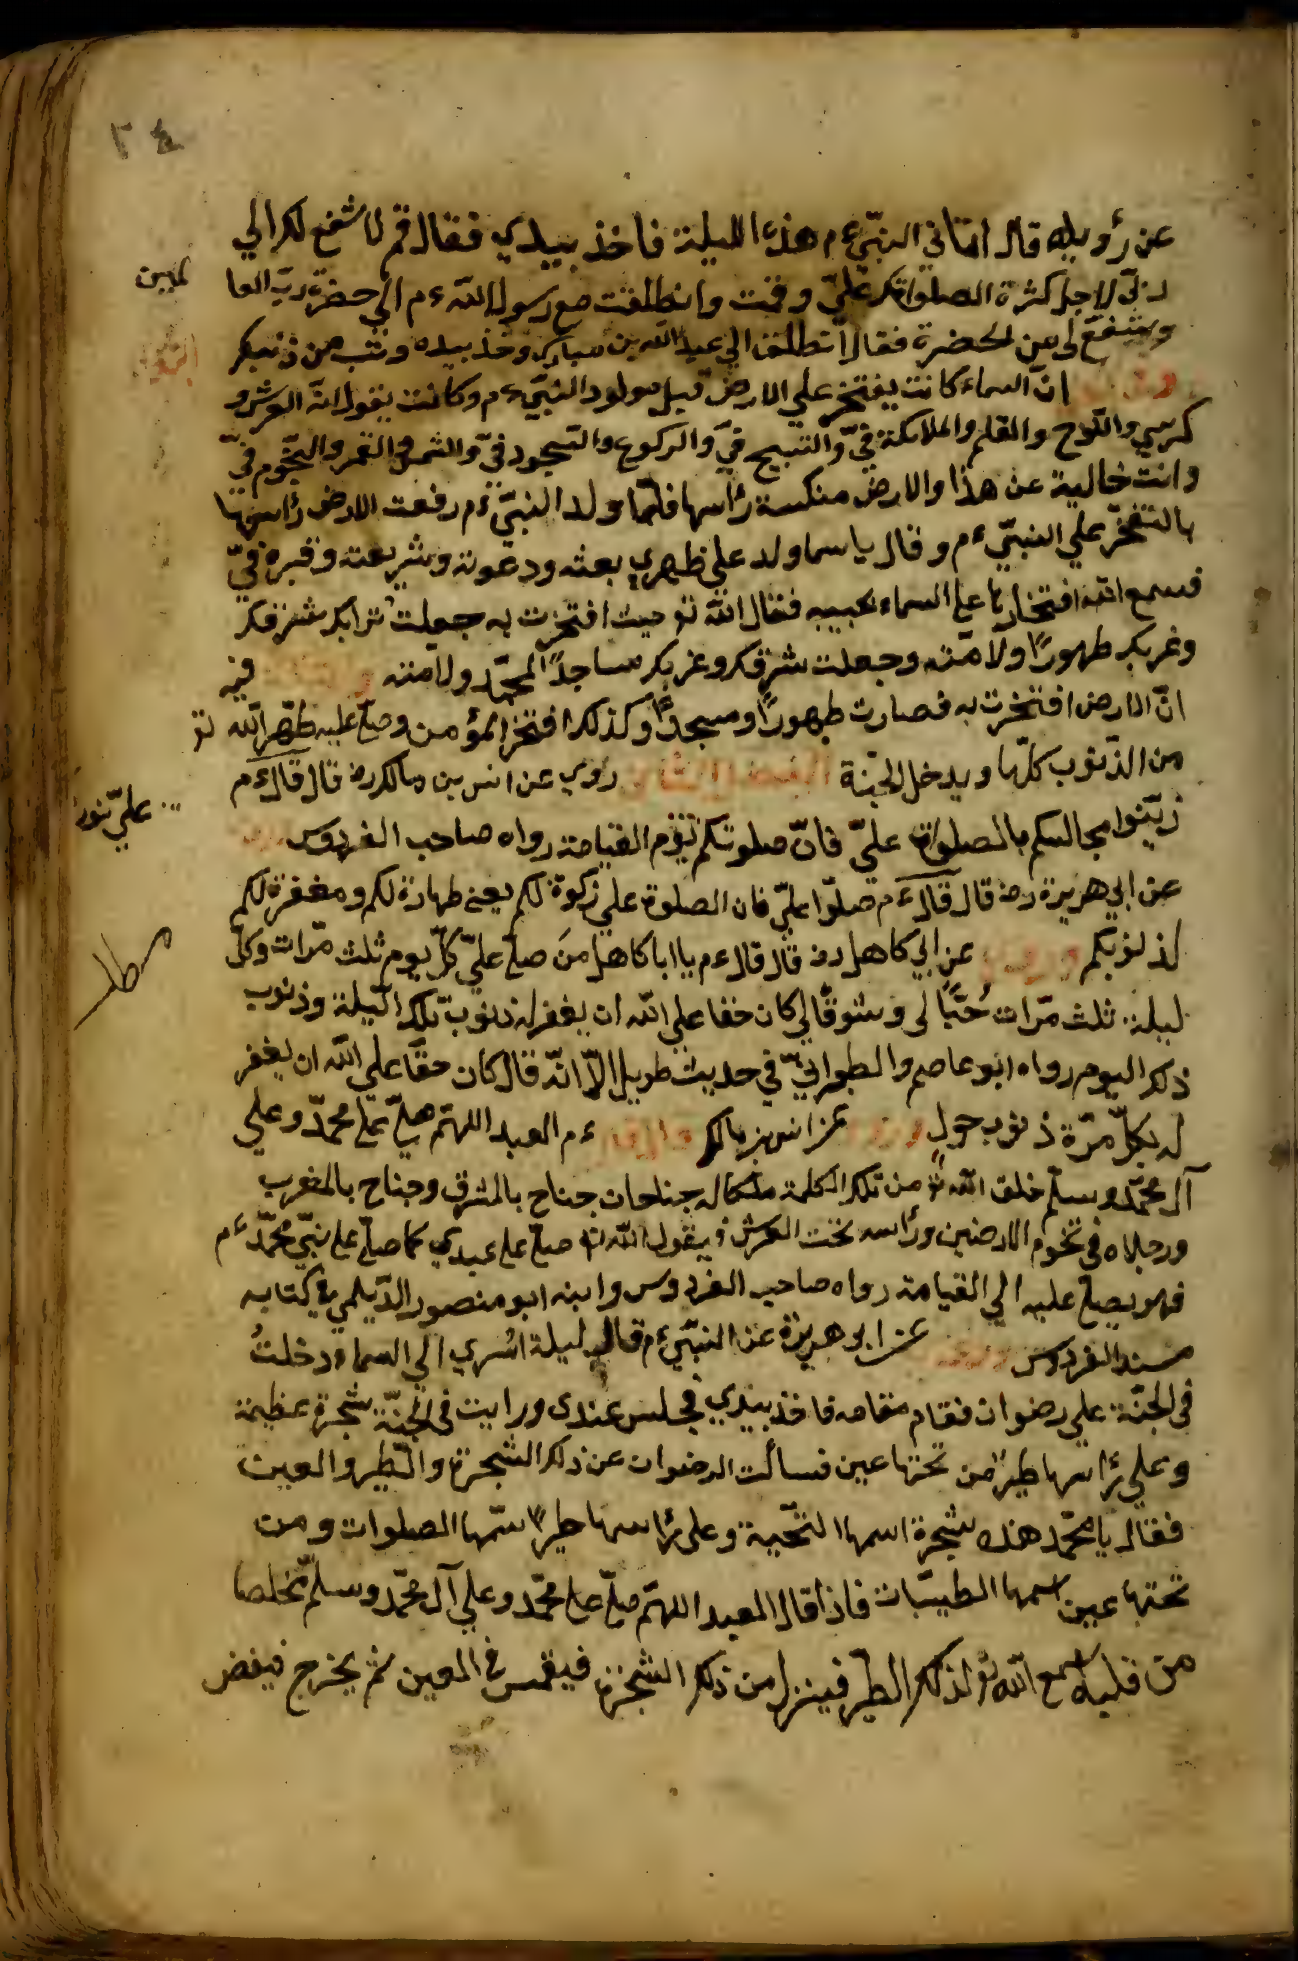 ٢٤
عن رؤياه قال اتاني النبيّ ءم هذه الليلة فاخذ بيدي فقال قم لاشفع لك الي
ربّي لاجل كثرة الصلواتك عليّ وقمت وانطلقت مع رسول الله ءم الي حضرة ربّ العا
لمين
ويشفّع لي من الحضرة فقال انطلق الي عبد الله بن مبارك وخذ بيده وتب من ذنبك
انّ السماء كانت يفتخر علي الارض قبل مولود النبيّ ءم وكانت يقول انّ العرش و
كرسي واللّوح والقلم والملائكة فيّ والتسبيح فيّ والركوع والسّجود فيّ والشمس والقمر والنّجوم فيّ
وانت خالية عن هذا والارض منكسة رأسها فلمّا ولد النبيّ ءم رفعت الارض رأسها
بالتفخّر علي النبيّ ءم وقال يا سما ولد علي ظهري بعثه ودعوته وشريعته وقبره فيّ
فسمع الله افتخارها علي السماء بحبيبه فقال الله تو حيث افتخرت به جعلت ترابك شرقك
وغربك طهورًا ولامّته وجعلت شرقك وغربك ساجدًا لمحمّد ولامّته فيه
انّ الارض افتخرت به فصارت طهورًا ومسجدًا وكذلك افتخر المؤمن وصلّ عليه طهّر الله تو
من الذّنوب كلّها ويدخل الجنّة الفصل الثاني روي عن انس بن مالك رض قال قال ءم
زيّنوا مجالسكم بالصلوة عليّ فانّ صلوتكم يوم القيامة رواه صاحب الفردوس
عليّ نور
عن ابي هريرة رض قال قال ءم صلّوا عليّ فان الصلوة علي زكوة لكم يعني طهارة لكم ومغفرة لكم
لذنوبكم عن ابي كاهل رض قال قال ءم يا ابا كاهل من صلّ عليّ كلّ يوم ثلث مرّات وكلّ
مطلب
ليلة ثلث مرّات حُبًّا لي وشوقًا لي كان حقا علي الله ان يغفر له ذنوب تلك اللّيلة وذنوب
ذلك اليوم رواه ابو عاصم والطبرانيّ في حديث طويل الّا انّه قال كان حقًّا علي الله ان يغفر
له بكلّ مرّة ذنوب حول عن انس بن مالك ءم العبد اللهمّ صلّ علي محمّد وعلي
آل محمّد وسلّم خلق الله تو من تلك الكلمة ملكا له جناحان جناح بالمشرق وجناح بالمغرب
ورجلاه في تخوم الارضين ورأسه تحت العرش فيقول الله تو صلّ علي عبدي كما صلّ علي نبيّ محمّد ءم
فهو يصلّ عليه الي القيامة رواه صاحب الفردوس وابنه ابو منصور الدّيلمي في كتابه
مسند الفردوس عن ابو هريرة عن النبيّ ءم قال ليلة اسري الي السماء دخلتُ
في الجنّة علي رضوان فقام مقامه فاخذ بيدي فجلس عندي ورايت في الجنّة شجرة عظيمة
وعلي رأسها طيرًا من تحتها عين فسألت الرضوان عن ذلك الشجرة والطّير والعين
فقال يا محمّد هذه شجرة اسمها التحّية وعلي رأسها طيرًا سمّها الصلوات ومن
تحتها عين اسمها الطيبّات فاذا قال العبد اللهمّ صلّ علي محمّد وعلي آل محمّد وسلّم مخلصا
من قلبه سمع الله تو لذلك الطّير فينزل من ذلك الشجرة فيغمس في العين ثم يخرج فينفض